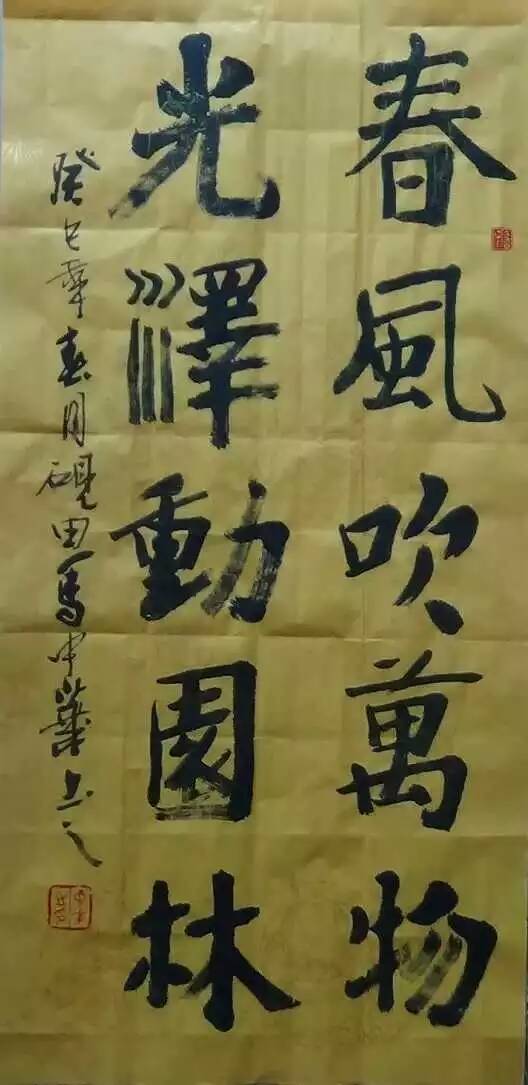 春風吹萬物
光澤動園林
癸巳年春月硯田馬中葉书之